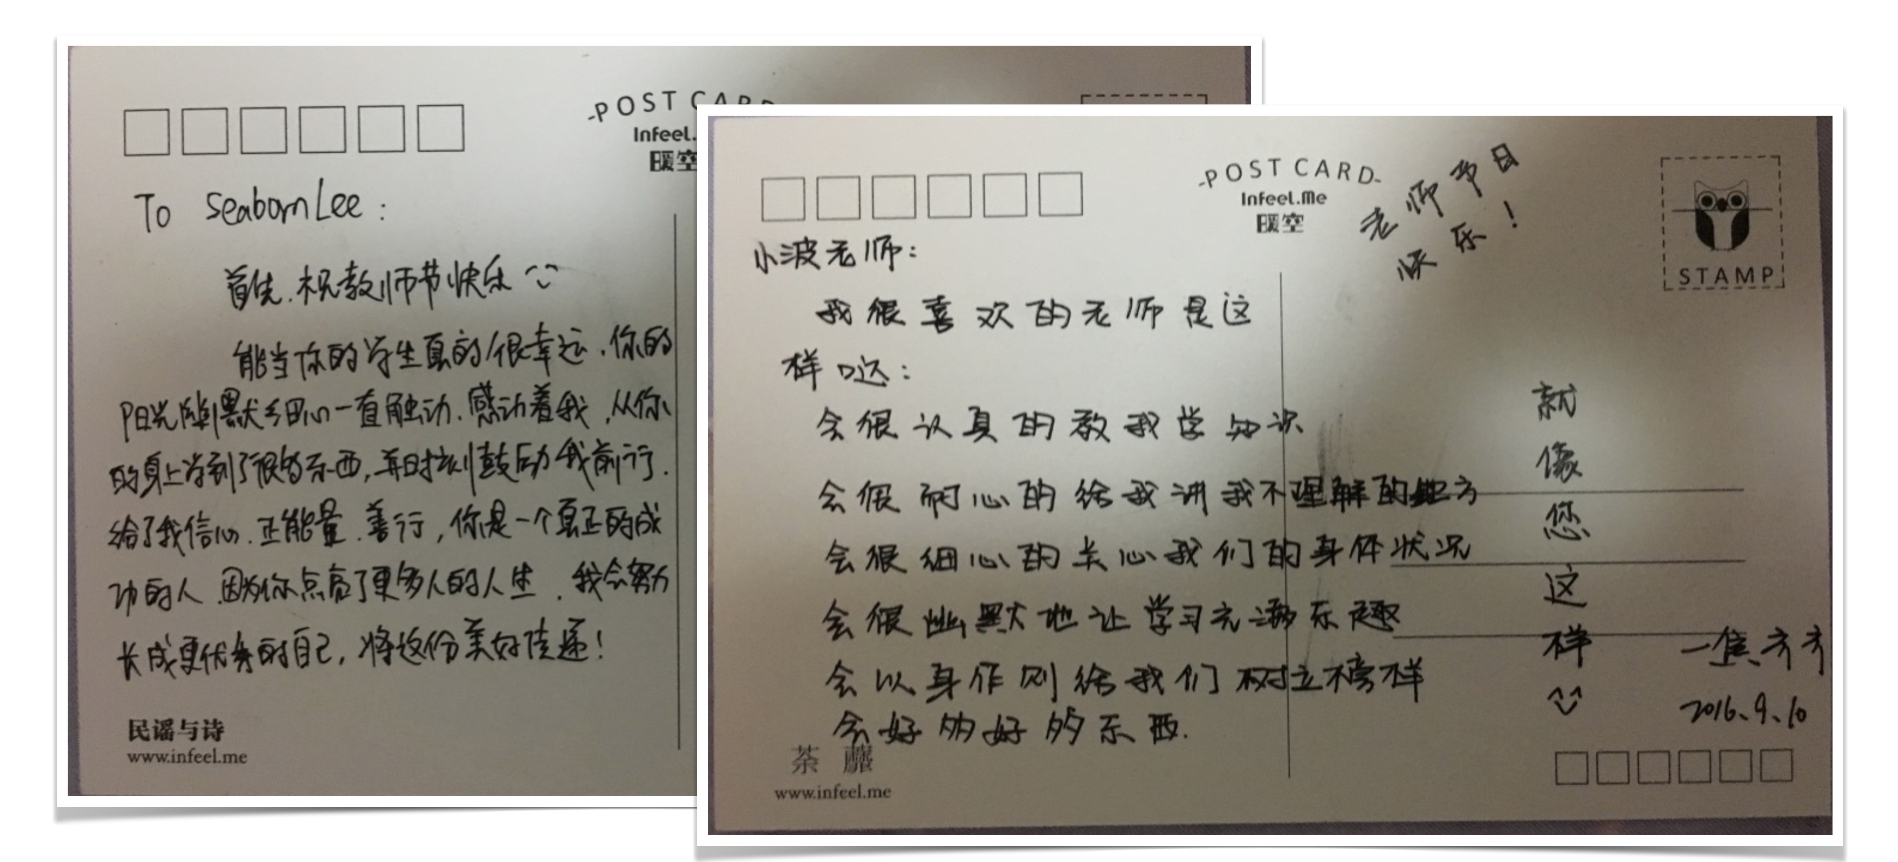 -POST CA
Infeel.
暖空
To Seaborn Lee:
首先.祝教师节快乐
能当你的学生真的很幸运.你的
阳光幽默细心一直触动.感动着我,从你
的身上学到了很多东西,并时刻鼓励我前行.
给了我信心.正能量.善行,你是一个真正的成
功的人.因为你点亮了更多人的人生.我会努力
长成更优秀的自己,将这份美好传递!
民谣与诗
www.infeel.me
-POST CARD-
Infeel.Me
暖空
老师节日
快乐!
STAMP
小波老师:
我很喜欢的老师是这
样哒:
会很认真的教我学知识
会很耐心的给我讲我不理解的地方
会很细心的关心我们的身体状况
会很幽默地让学习充满乐趣
会以身作则给我们树立榜样
会好多好多东西.
就像您这样
一焦齐齐
2016.9.10
荼蘼
www.infeel.me